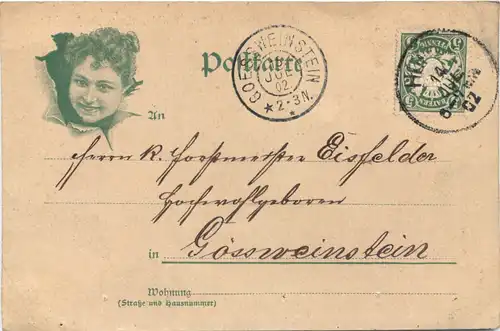 Postkarte
GOESSWEINSTEIN
JUL
02
2-3N.
14
02
BAYERN
5
An
Herrn k. Forstmeister Eisfelder
Hochwohlgeboren
in Gössweinstein
Wohnung
(Straße und Hausnummer)